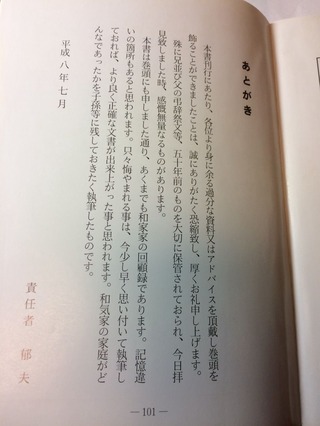 あとがき
本書刊行にあたり、各位より身に余る過分な資料又はアドバイスを頂戴し巻頭を
飾ることができましたことは、誠にありがたく恐縮致し、厚くお礼申し上げます。
殊に兄並び父の弔辞祭文等、五十年前のものを大切に保管されておられ、今日拝
見致しました時、感慨無量なるものがあります。
本書は巻頭にも申しました通り、あくまでも和家家の回顧録であります。記憶違
いの箇所もあると思われます。只々悔やまれる事は、今少し早く思い付いて執筆し
ておれば、より良く正確な文書が出来上がった事と思われます。和気家の家庭がど
んなであったかを子孫等に残しておきたく執筆したものです。
平成八年七月
責任者 郁夫
— 101 —